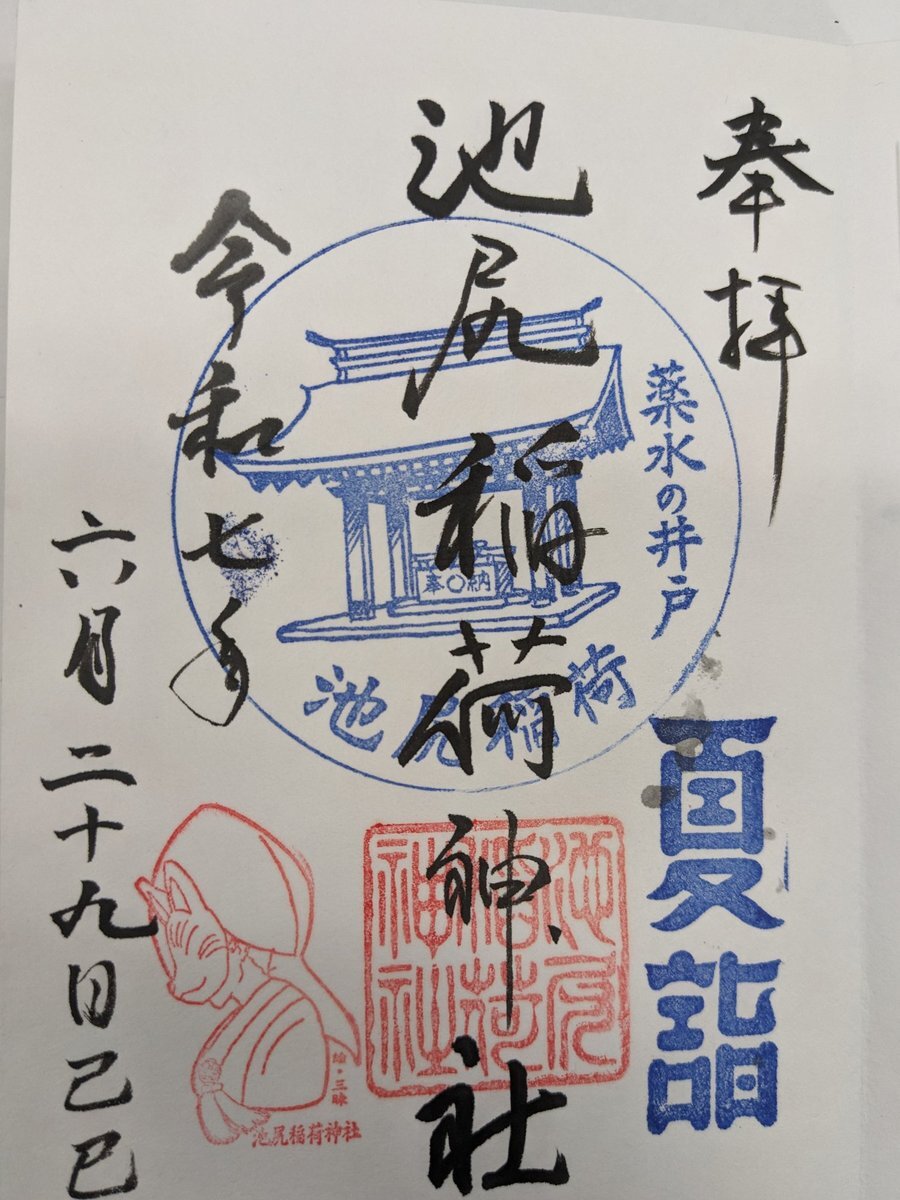 奉拝
薬水の井戸
夏詣
池尻稲荷神社
奉〇納
池尻稲荷
池尻稲荷神社
令和七年
六月二十九日己巳
絵・三昧
池尻稲荷神社